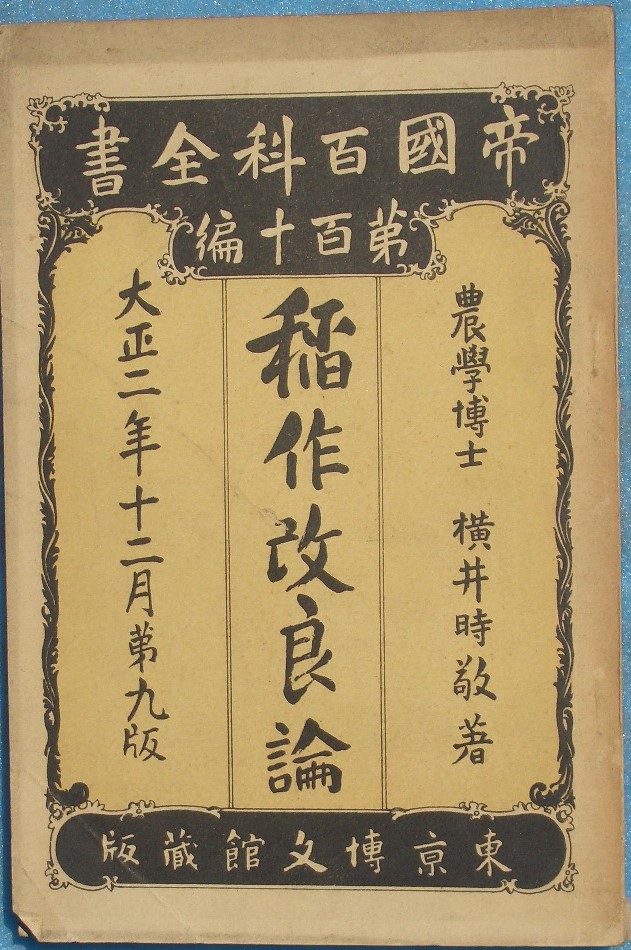 帝國百科全書
第百十編
農學博士 橫井時敬著
稻作改良論
大正二年十二月第九版
東京博文館藏版